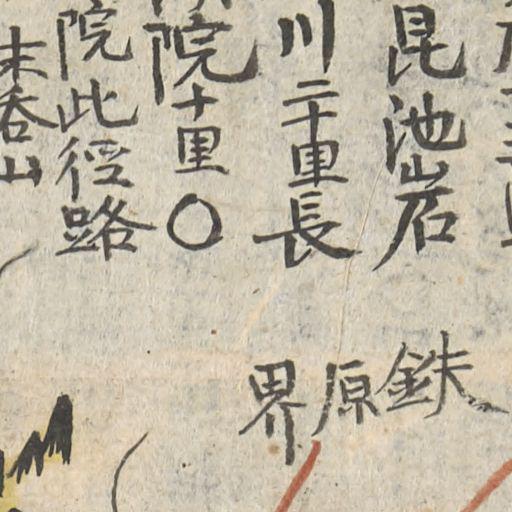 昆池岩
川二十里長
院十里〇
院此徑路
末吞山
鉄原界